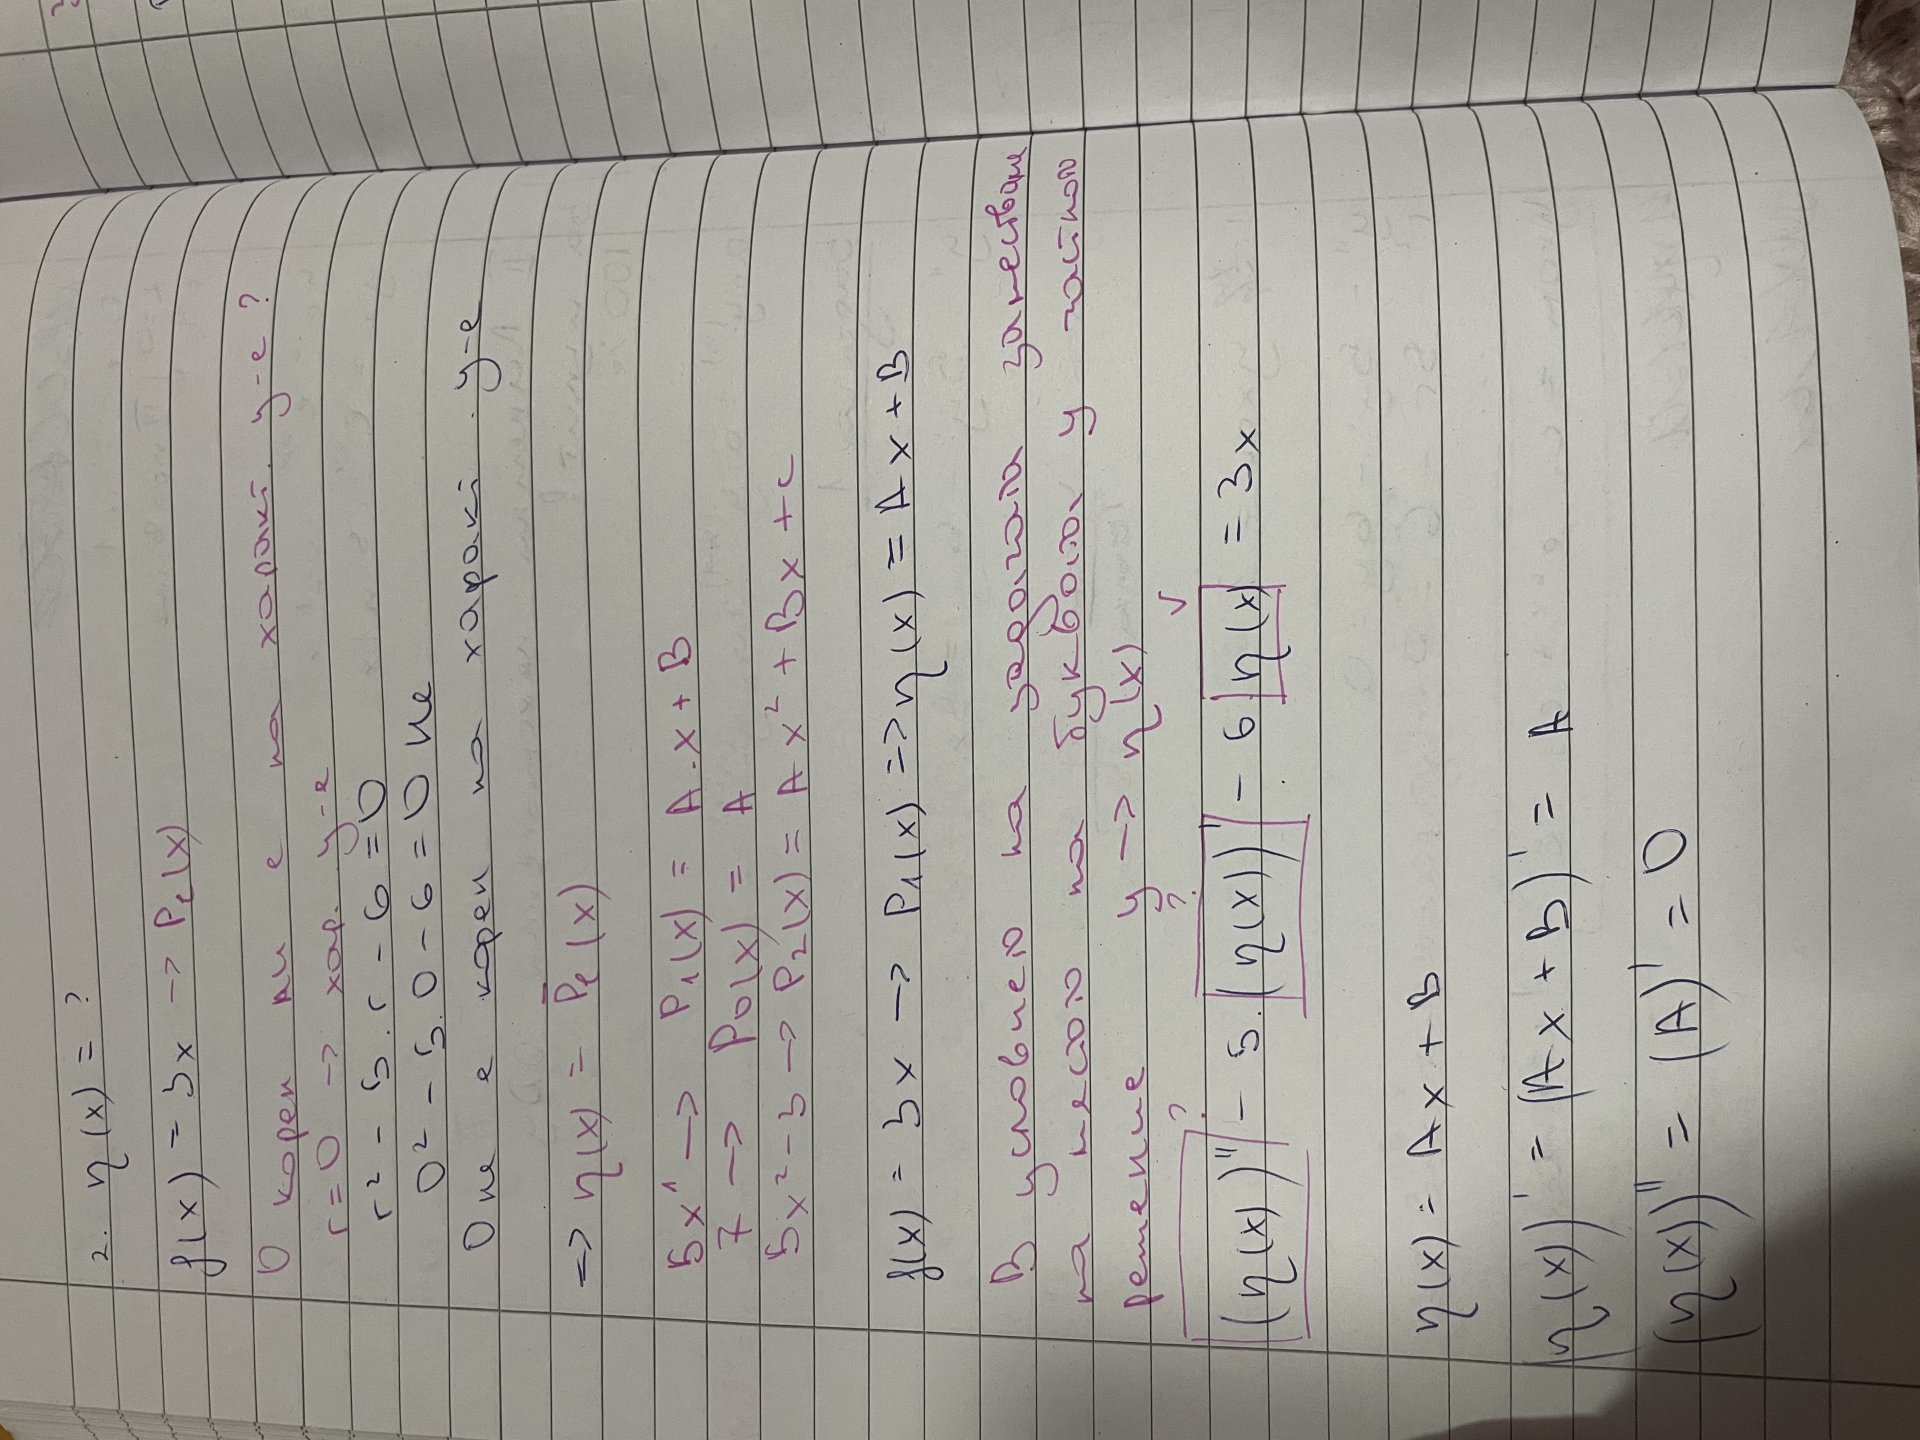 2. η(x) = ?
f(x) = 3x -> Pₑ(x)
0 корен ли е на характ. у-е ?
r=0 -> хар. у-е
r² - 5.r - 6 = 0
0² - 5.0 - 6 = 0 Не
0 не е корен на характ. у-е
=> η(x) = P̄ₑ(x)
5x¹ -> P₁(x) = A.x + B
7 -> P₀(x) = A
5x² - 3 -> P₂(x) = Ax² + Bx + c
f(x) = 3x -> P₁(x) => η(x) = Ax + B
В условието на задачата заместваме
на мястото на буквата y частното
решение y -> η(x)
? ? √
(η(x))'' - 5.(η(x))' - 6.η(x) = 3x
η(x) = Ax + B
(η(x))' = (Ax + B)' = A
(η(x))'' = (A)' = 0